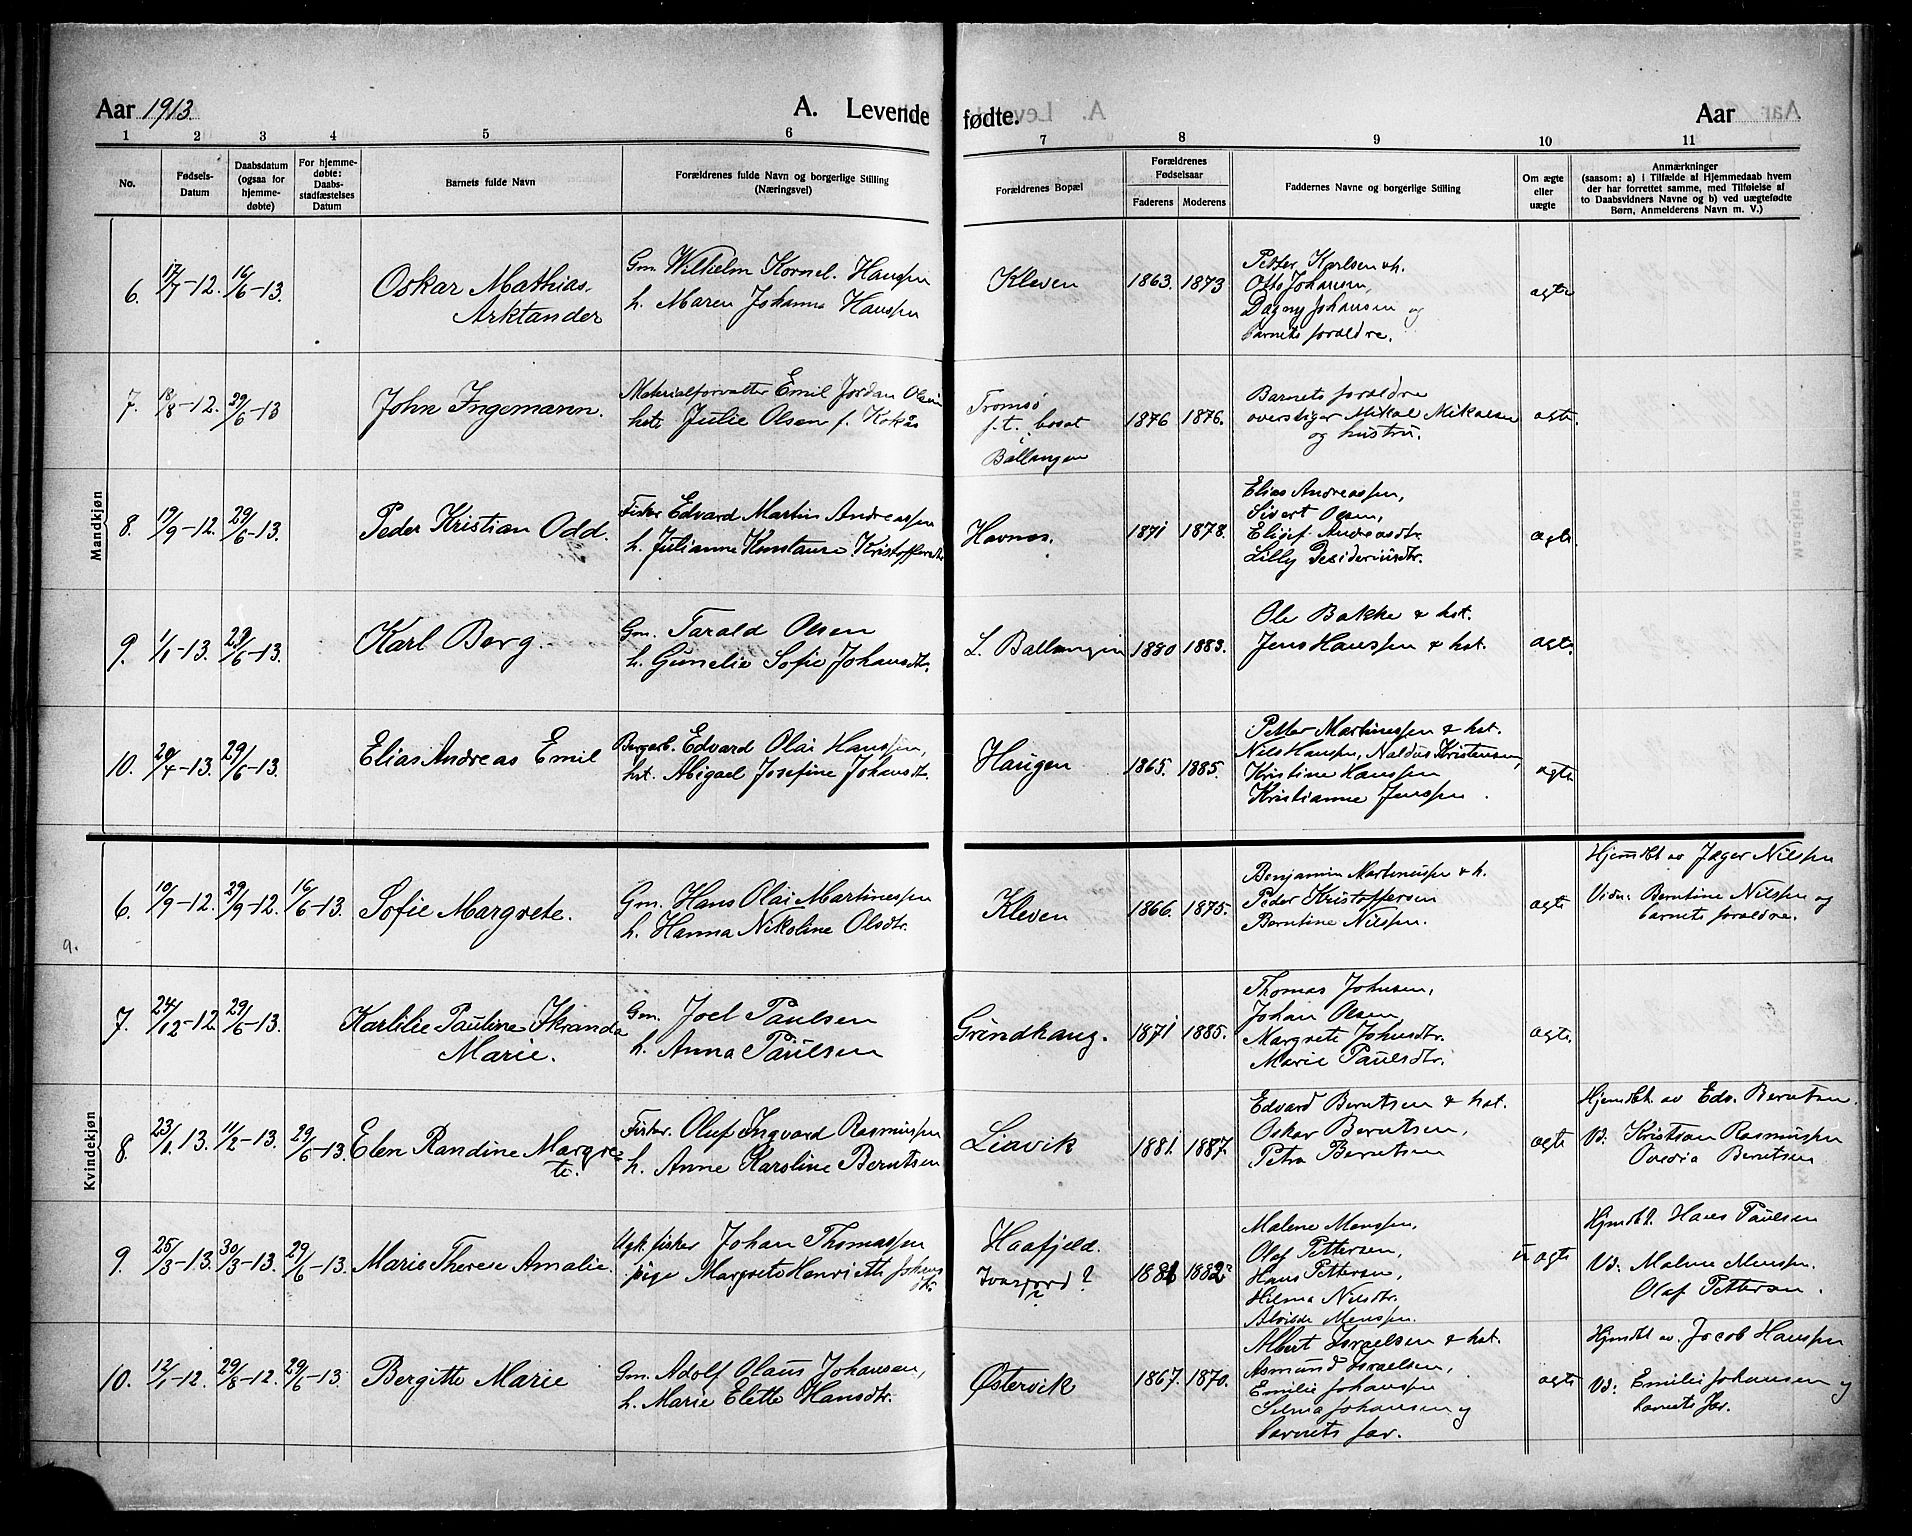 Aar 1913. A. Levende fødte. Aar
1 2 3 4 5 6 7 8 9 10 11
No.
Fødsels-Datum
Daabsdatum (ogsaa for hjemme-døbte)
For hjemme-døbte: Daabs-stadfæstelses Datum
Barnets fulde Navn
Forældrenes fulde Navn og borgerlige Stilling (Næringsvei)
Forældrenes Bopæl
Forældrenes Fødselsaar
Faderens Moderens
Faddernes Navne og borgerlige Stilling
Om ægte eller uægte
Anmærkninger
(saasom: a) i Tilfælde af Hjemmedaab hvem
der har forrettet samme, med Tilføielse af
to Daabsvidners Navne og b) ved uægtefødte
Børn, Anmelderens Navn m. V.)
Mandkjøn
6. 17/7-12. 16/6-13. Oskar Mathias Arktander
Gm. Wilhelm Kornel. Hanssen
h. Maren Johanna Hanssen
Kleven 1863. 1873
Petter Karlsen & h.
Otto Johansen,
Dagny Johansen og
barnets foraldre.
agte
7. 18/8-12. 29/6-13 John Ingemann.
Materialforvalter Emil Jordan Olsen
hst. Julie Olsen f. Kokås
Tromsø
f.t. bosat
i
Ballangen
1876 1876.
Barnets foraldre
overstiger Mikal Mikalsen
og hustru.
agte.
8. 19/9-12. 29/6-13. Peder Kristian Odd.
Fisker Edvard Martin Andreassen
h. Julianne Konstanse Kristoffersdtr
Havnes. 1871 1878.
Elias Andreassen,
Sivert Olsen,
Elisif Andreasdtr.
Lilly Desideriusdtr.
agte.
9. 1/1-13. 29/6-13. Karl Berg.
Gm. Tarald Olsen
h. Gunelie Sofie Johansdtr.
L. Ballangen 1880 1883.
Ole Bakke & hst.
Jens Hanssen & hst.
agte.
10. 20/4-13. 29/6-13. Elias Andreas Emil
Bergarb. Edvard Olai Hanssen,
hst. Abigael Josefine Johansdtr.
Haugen 1865. 1885.
Petter Martinessen & hst.
Nils Hanssen, Naldus Kristensen,
Kristine Hanssen
Kristianne Jenssen.
agte
Kvindekjøn
9.
6. 10/9-12. 29/9-12. 16/6-13. Sofie Margrete.
Gm. Hans Olai Martinessen
h. Hanna Nikoline Olsdtr.
Kleven 1866. 1875.
Benjamin Martinussen & h.
Peder Kristoffersen
Berntine Nilssen.
agte
Hjemdbt av Jæger Nilssen
Vidn: Berntine Nilssen og
barnets foraldre.
7. 24/12-12. 29/6-13. Karlilie Pauline Skranda
Marie.
Gm. Joel Paulsen
h. Anna Paulsen
Grindhaug. 1871 1885.
Thomas Johnsen,
Johan Olsen
Margrete Johnsdtr.
Marie Paulsdtr.
agte.
8. 23/1 13. 11/2-13. 29/6-13. Elen Randine Margre-
te.
Fisker. Oluf Ingvard Rasmussen
h. Anne Karoline Berntsen
Liavik 1881. 1887.
Edvard Berntsen & hst.
Oskar Berntsen,
Petra Berntsen
agte
Hjemdbt. av Edv. Berntsen.
Vd: Kristian Rasmussen
Ovedia Berntsen
9. 25/3-13. 30/3-13. 29/6-13. Marie Therese Amalie.
Ugk. fisker Johan Thomassen
pige Margrete Henriette Johans
dtr.
Haafjeld.
? 1881 1882?
Malene Monssen,
Olaf Pettersen,
Hans Pettersen,
Hilma Nilsdtr.
Alvilde Monssen.
u agte
Hjmdbt. Hans Paulsen
Vd: Malene Monssen.
Olaf Pettersen.
10. 12/1-12. 29/8-12. 29/6-13. Bergitte Marie
Gm. Adolf Olaus Johansen,
h. Marie Elette Hansdtr.
Østervik 1867. 1870.
Albert Israelsen & hst.
Asmund Israelsen,
Emilie Johanssen
Selma Johansen og
barnets far.
agte
Hjmdbt av. Jacob Hanssen
Vd: Emilie Johansen og
barnets far.